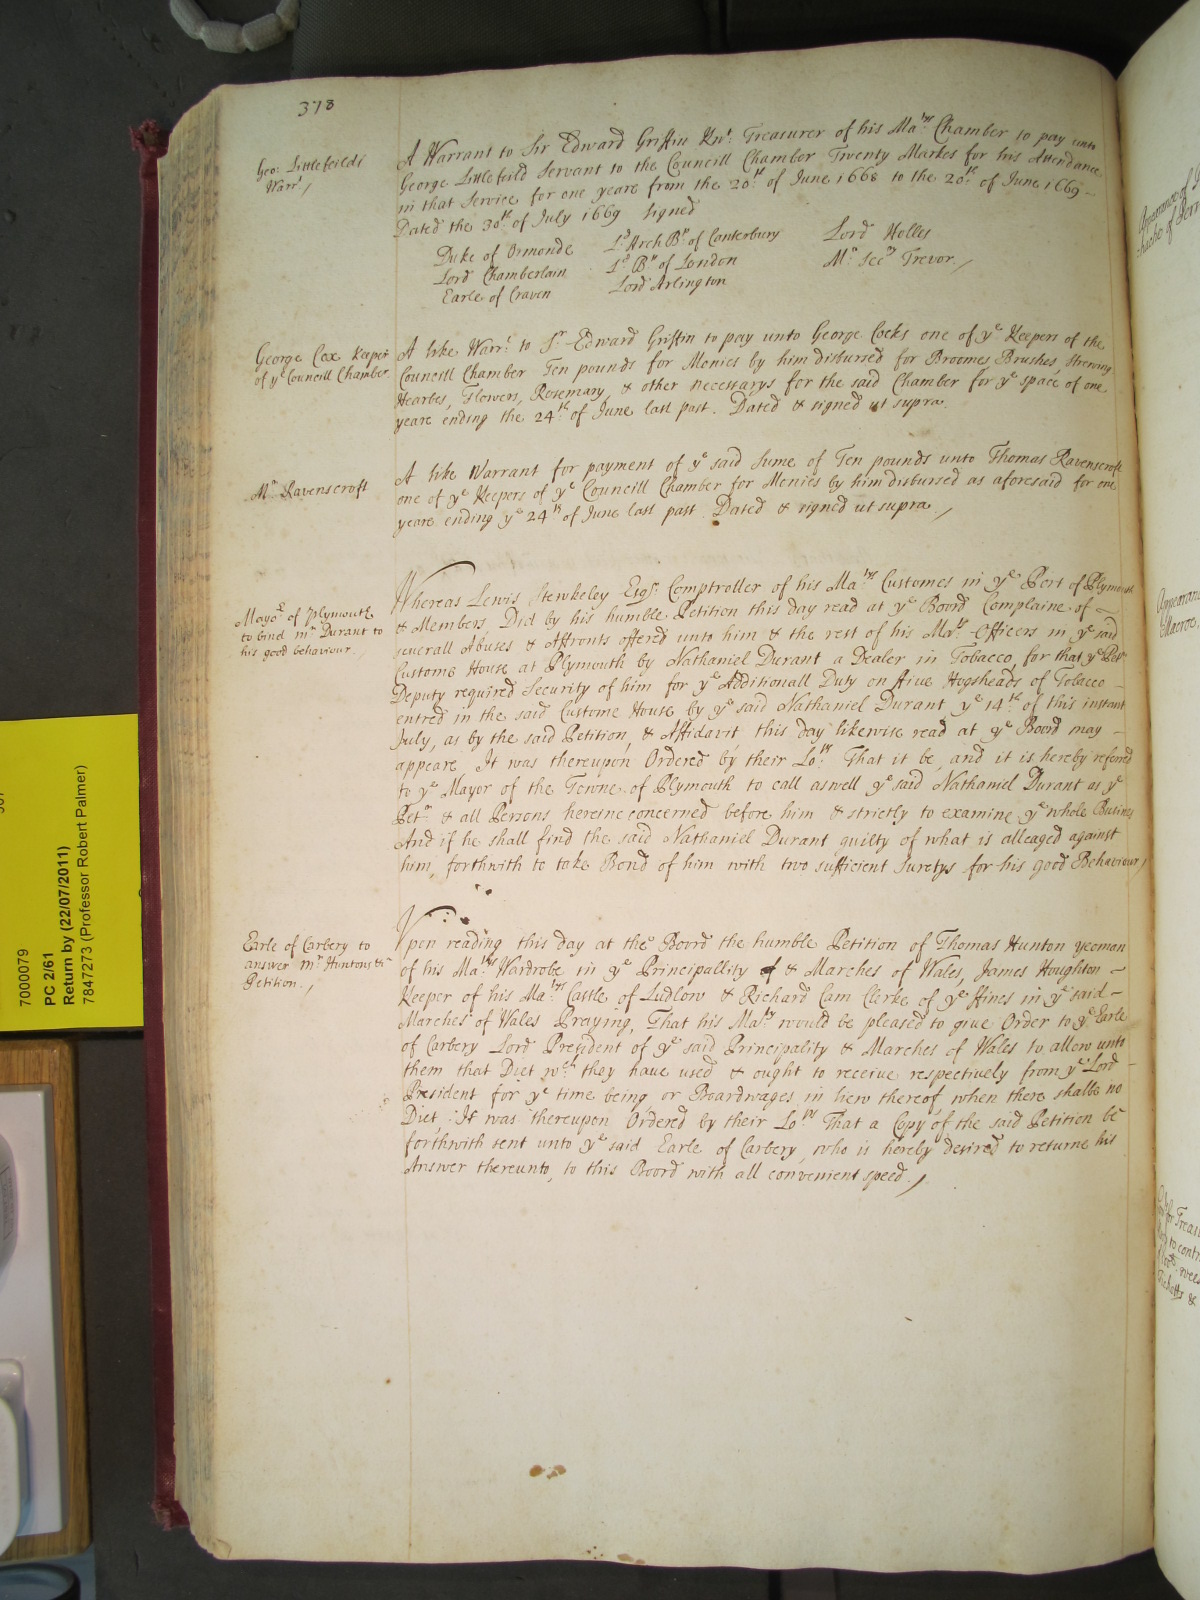 378
Geo: Littlefeilds
Warrt,
A Warrant to Sir Edward Griffin Knt: Treasurer of his Matys Chamber to pay unto
George Littlefeild Servant to the Councill Chamber Twenty Markes for his Attendance
in that Service for one yeare from the 20th of June 1668 to the 20th of June 1669 -
Dated the 30th of July 1669 Signed
Duke of Ormonde
Lord Chamberlain
Earle of Craven
Ld Arch Bp of Canterbury
Ld Bp of London
Lord Arlington
Lord Holles
Mr Secry Trevor,
George Cox Keeper
of ye Councill Chamber
A like Warrt to Sr Edward Griffin to pay unto George Cocks one of ye Keepers of the
Councill Chamber Ten pounds for Monies by him disbursed for Broomes, Brushes, Strewing
Hearbes, Flowers, Rosemary, & other necessarys for the said Chamber for ye space of one
yeare ending the 24th of June last past. Dated & signed ut supra.
Mr Ravenscroft
A like Warrant for payment of ye said Sume of Ten pounds unto Thomas Ravenscroft
one of ye Keepers of ye Councill Chamber for Monies by him disbursed as aforesaid for one
yeare ending ye 24th of June last past. Dated & signed ut supra,
Mayor of Plymouth
to bind mr Durant to
his good behaviour.
Whereas Lewis Stewkeley Esqr. Comptroller of his Matys Customes in ye Port of Plymouth
& Members, Did by his humble Petition this day read at ye Board Complaine of -
severall Abuses & Affronts offered unto him & the rest of his Matys Officers in ye said
Custome House at Plymouth by Nathaniel Durant a Dealer in Tobacco, for that ye Petrs
Deputy required Security of him for ye Additionall Duty on ffive Hogsheads of Tobacco -
entred in the said Custome House by ye said Nathaniel Durant ye 14th of this instant
July, as by the said Petition, & Affidavit this day likewise read at ye Board may -
appeare. It was thereupon Ordered by their Lopps That it be, and it is hereby referred
to ye Mayor of the Towne of Plymouth to call aswell ye said Nathaniel Durant as ye
Petr & all Persons hereine concerned before him & strictly to examine ye whole Busines
And if he shall find the said Nathaniel Durant guilty of what is alleaged against
him, forthwith to take Bond of him with two sufficient Suretys for his good Behaviour,
Earle of Carbery to
answer mr Huntons &c
Petition.,
Vpon reading this day at the Board the humble Petition of Thomas Hunton yeoman
of his Matys Wardrobe in ye Principallity of & Marches of Wales, James Houghton -
Keeper of his Matys Castle of Ludlow & Richard Cam Clerke of ye ffines in ye said -
Marches of Wales Praying, That his Maty would be pleased to give Order to ye Earle
of Carbery Lord President of ye said Principality & Marches of Wales to allow unto
them that Diet wch they have used & ought to receive respectively from ye Lord -
President for ye time being or Boardwages in liew thereof when there shalbe no
Diet, It was thereupon Ordered by their Lopps That a Copy of the said Petition be
forthwith sent unto ye said Earle of Carbery, who is hereby desired to returne his
Answer thereunto, to this Board with all convenient speed.,
7000079
PC 2/61
Return by (22/07/2011)
7847273 (Professor Robert Palmer)